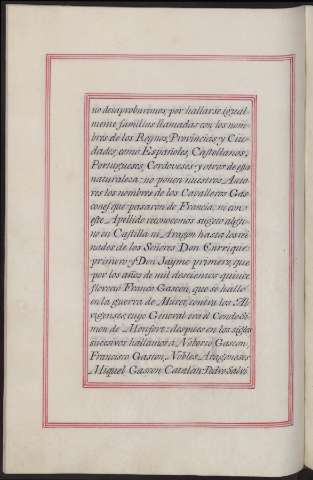 no desaprobarimos, por hallarse igual-
mente familias llamadas con los nom-
bres de los Reynos, Provincias, y Ciu-
dades, como Españoles, Castellanos,
Portugueses, Cordoveses, y otros de esta
naturaleza: no ponen nuestros Auto-
res los nombres de los Cavalleros Gas-
cones que pasaron de Francia, ni con
este Apellido reconocemos sugeto algu-
no en Castilla ni Aragon hasta los rei-
nados de los Señores Don Enrrique
primero y Don Jayme primero, que
por los años de mil doscientos quince
floreció Franco Gascon, que se halló
en la guerra de Muret, contra los Al-
vigenses, cuyo General era el Conde Si-
mon de Monfort: despues en los siglos
sucesivos hallamos á Gascon,
Francisco Gascon, Nobles Aragoneses
Miguel Gascon Catalan: Pedro